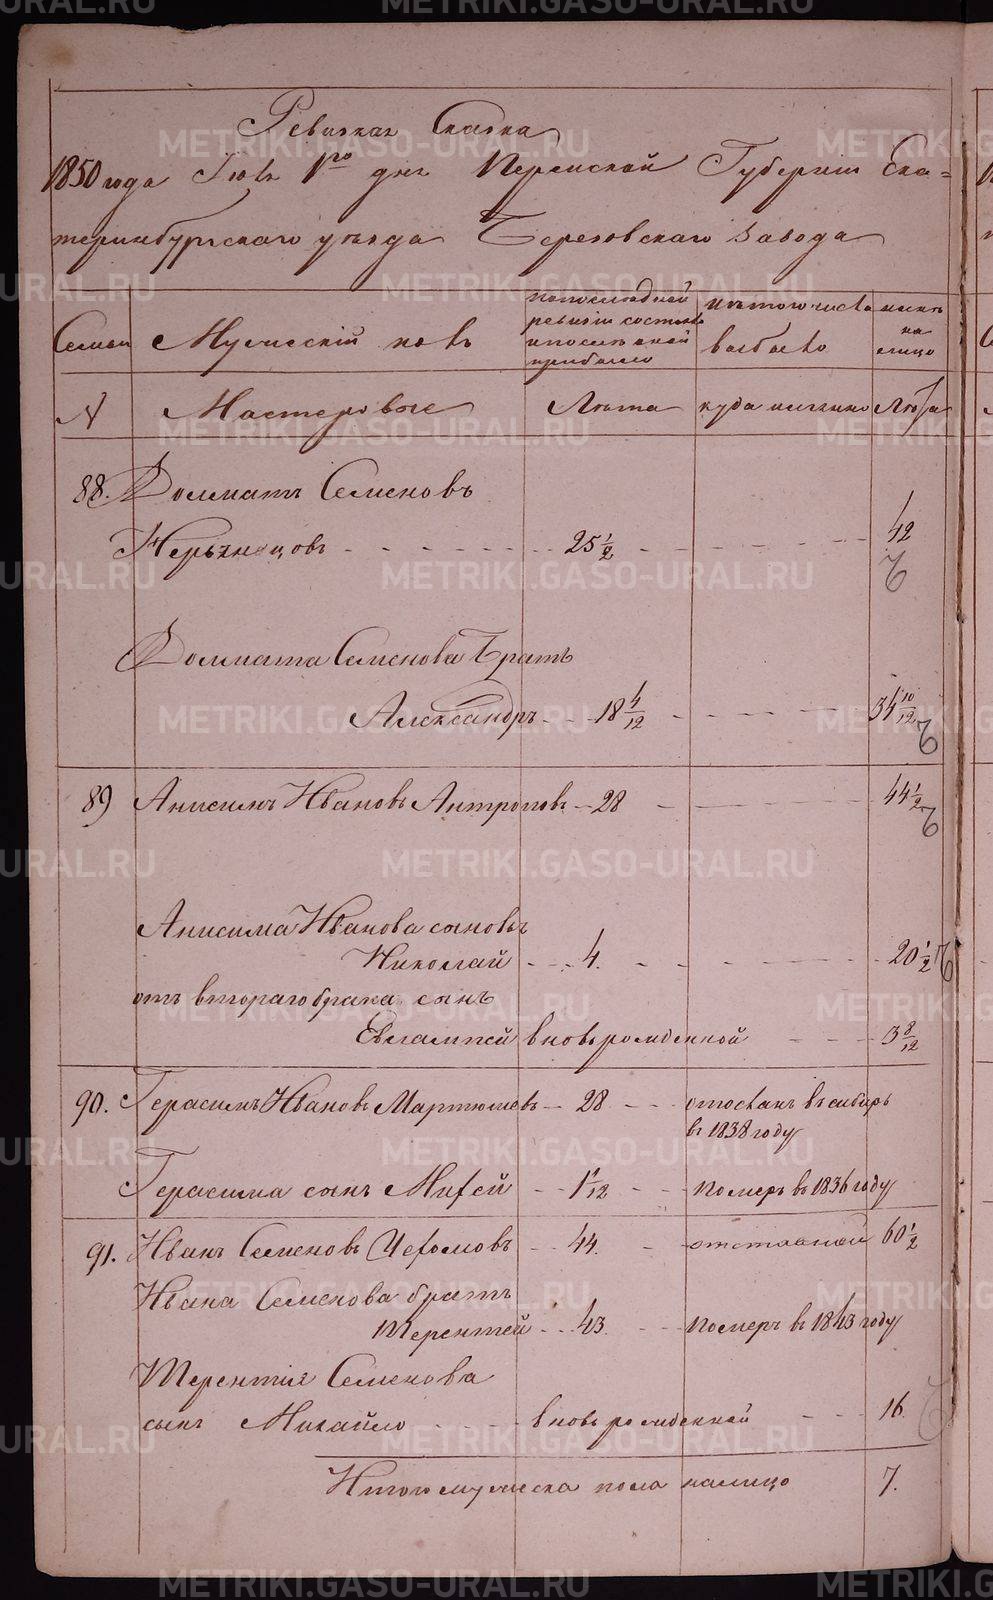 Ревизкая Сказка
1850 года Іюля 1го дня Пермской Губерніи Ека-
теринбургскаго уѣзда Березовскаго завода
Семьи Мужескій полъ по последней ревизіи состояло и после оной прибыло изъ того числа выбыло нынѣ на лицо
N Мастеровые Лѣта куда именно Лѣта
88. Долматъ Семеновъ
25 1/2 42
Долмата Семенова Братъ
Александръ 18 4/12 34 10/12
89 Анисимъ Ивановъ Антроповъ 28 44 1/2
Анисима Иванова сыновья
Николай 4. 20 1/2
отъ втораго брака сынъ
Евлампей вновьрожденной 3 8/12
90. Герасимъ Ивановъ Мартюшевъ 28 отосланъ въ сибирь
въ 1838 году
Герасима сынъ 1/12 померъ въ 1836 году
91. Иванъ Семеновъ 44. отставной 60 1/2
Ивана Семенова братъ
Терентей 43. померъ в 1843 году
Терентия Семенова
сынъ Михайло вновьрожденной 16.
Итого мужеска пола налицо 7.
METRIKI.GASO-URAL.RU